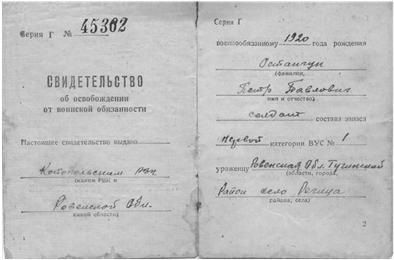 Серия Г № 45302
СВИДЕТЕЛЬСТВО
об освобождении
от воинской обязанности
Настоящее свидетельство выдано
Костопольским РВК
(каким РВК и
Ровенской Обл.
какой области)
Серия Г
военнообязанному 1920 года рождения
(фамилия,
Петр Павлович
имя и отчество)
солдат состава запаса
первой категории ВУС № 1
уроженцу Ровенская Обл. Тучинский
(области, города,
Район село Речица
района, села)
2